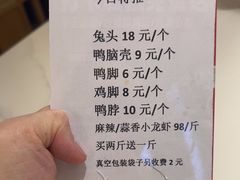 兔头 18 元/个
鸭脑壳 9 元/个
鸭脚 6 元/个
鸡脚 8 元/个
鸭脖 10 元/个
麻辣/蒜香小龙虾 98/斤
买两斤送一斤
真空包装袋子另收费 2 元